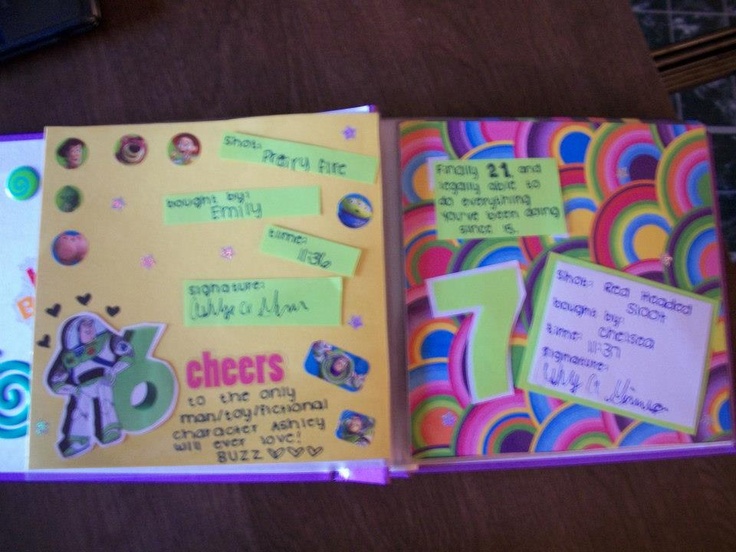 shot:
Prairy Fire
bought by:
Emily
time:
11:36
signature:
6
cheers
to the only
man/toy/fictional
character Ashley
will ever love!
BUZZ ♡♡♡
Finally 21 and
legally able to
do everything
you've been doing
since 15.
7
shot: Red Headed
Sloot
bought by:
Chelsea
time:
11:37
signature: